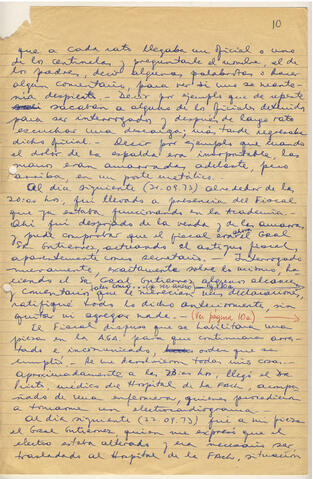 10
que a cada rato llegaba un oficial o uno
de los centinelas y preguntarle el nombre, el de
los padres, decir algunas palabras o hacer
algún comentario, para ver si uno se mante-
nía despierto.- Decir por ejemplo que de repente
sacaban a alguno de los oficiales detenidos
para ser interrogados y después de largo rato
escuchar una descarga; más tarde regresaba
dicho oficial.- Decir por ejemplo que cuando
el dolor de la espalda era insoportable, las
manos eran amarradas adelante, pero
arriba, en un poste metálico.
Al día siguiente (21.09.73) alrededor de las
20:00 hrs, fui llevado a presencia del Fiscal
que ya estaba funcionando en la Academia.-
Ahí fui despojado de la venda y de las amarras,
pude comprobar que el fiscal era el Gral
Sr. Gutiérrez, actuando el antiguo fiscal,
aparentemente como secretario.- Interrogado
nuevamente, exactamente sobre lo mismo, ha-
ciendo el Sr. Gral Gutiérrez algunos alcances
y comentarios que merecían mis declaraciones,
ratifiqué todo lo dicho anteriormente, sin
quitar ni agregar nada.- (Ver página 10a)
El Fiscal dispuso que se habilitara una
pieza en la AGA. para que continuara arres-
tado e incomunicado, orden que se
cumplió.-
Aproximadamente a las 23:00 hrs, llegó el Dr.
médico del Hospital de la FACH, acompa-
ñado de una enfermera, quienes procedieron
a tomarme un electrocardiograma.-
Al día siguiente (22.09.73) fue a mi pieza
el Gral Gutiérrez, quien me expresó que el
electro estaba alterado y era necesario ser
trasladado al Hospital de la FACH, situación